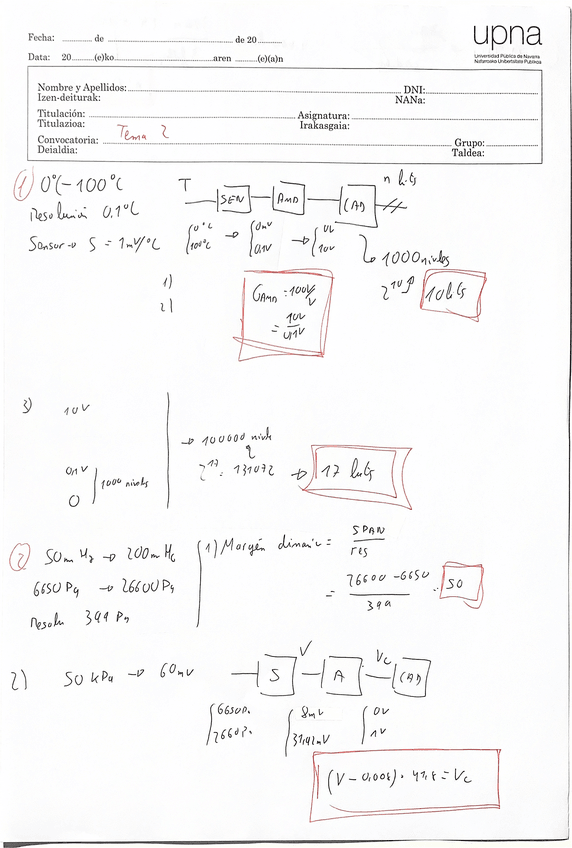 upna
Universidad Pública de Navarra
Nafarroako Unibertsitate Publikoa
Fecha: de de 20
Data: 20 (e)ko aren (e)(a)n
Nombre y Apellidos: DNI:
Izen-deiturak: NANa:
Titulación: Asignatura:
Titulazioa: Irakasgaia:
Convocatoria: Tema 2 Grupo:
Deialdia: Taldea:
1) 0°C - 100°C T SEN AMP CAD n bits
Resolución 0.1°C
Sensor → S = 1mV/°C {0°C 100°C → {0mV 0,1V → {0V 10V
↳ 1000 niveles
1) G AMP = 100 V/V 2^10 10 bits
2) = 10V / 0,1V
3) 10V
→ 100000 nivels
0,1V 1000 nivels 2^17 = 131072 → 17 bits
0
2) 50mmHg → 200mmHg 1) Margen dinamic = SPAN / res
6650 Pa → 26600 Pa = 26600 - 6650 / 399 = 50
Resolu 399 Pa
2) 50 kPa → 60mV S V A Vc CAD
{6650Pa 2660Pa {8mV 31,92mV {0V 1V
(V - 0,008) · 41,8 = Vc